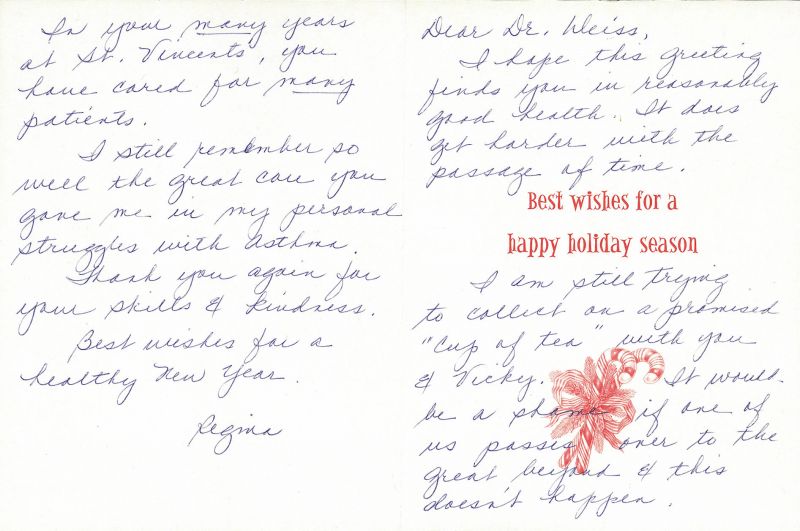 In your many years
at St. Vincents, you
have cared for many
patients.
I still remember so
well the great care you
gave me in my personal
struggles with asthma.
Thank you again for
your skills & kindness.
Best wishes for a
healthy New Year.
Regina
Dear Dr. Weiss,
I hope this greeting
finds you in reasonably
good health. It does
get harder with the
passage of time.
Best wishes for a
happy holiday season
I am still trying
to collect on a promised
"Cup of tea" with you
& Vicky. It would
be a shame if one of
us passes over to the
great beyond & this
doesn't happen.